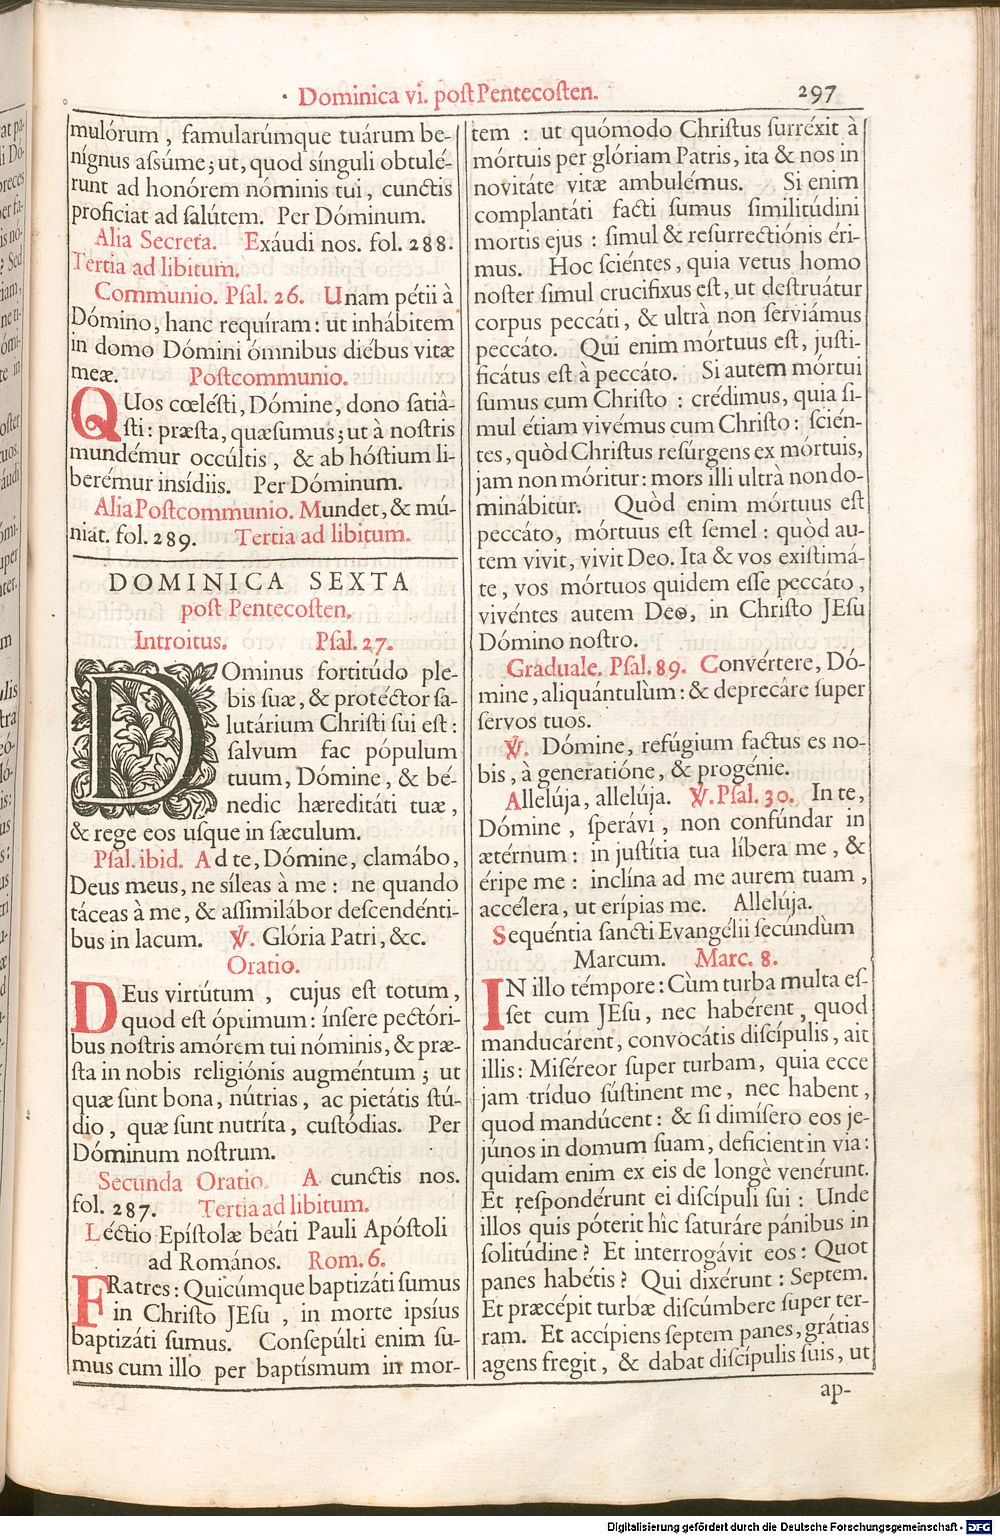 Dominica vi. poſt Pentecoſten. 297
mulórum, famularúmque tuárum be-
nígnus aſsúme; ut, quod sínguli obtulé-
runt ad honórem nóminis tui, cunctis
proficiat ad ſalútem. Per Dóminum.
Alia Secreta. Exáudi nos. fol. 288.
Tertia ad libitum.
Communio. Pſal. 26. Unam pétii à
Dómino, hanc requíram: ut inhábitem
in domo Dómini ómnibus diébus vitæ
meæ. Poſtcommunio.
QUos cœléſti, Dómine, dono ſatiâ-
ſti: præſta, quæſumus; ut à noſtris
mundémur occúltis, & ab hóſtium li-
berémur insídiis. Per Dóminum.
Alia Poſtcommunio. Mundet, & mú-
niat. fol. 289. Tertia ad libitum.
DOMINICA SEXTA
poſt Pentecoſten.
Introitus. Pſal. 27.
DOminus fortitúdo ple-
bis ſuæ, & protéctor ſa-
lutárium Chriſti ſui eſt:
ſalvum fac pópulum
tuum, Dómine, & bé-
nedic hæreditáti tuæ,
& rege eos uſque in ſæculum.
Pſal. ibid. Ad te, Dómine, clamábo,
Deus meus, ne síleas à me: ne quando
táceas à me, & aſſimilábor deſcendénti-
bus in lacum. ℣. Glória Patri, &c.
Oratio.
DEus virtútum, cujus eſt totum,
quod eſt óptimum: ínſere pectóri-
bus noſtris amórem tui nóminis, & præ-
ſta in nobis religiónis augméntum; ut
quæ ſunt bona, nútrias, ac pietátis ſtú-
dio, quæ ſunt nutríta, cuſtódias. Per
Dóminum noſtrum.
Secunda Oratio. A cunctis nos.
fol. 287. Tertia ad libitum.
Léctio Epíſtolæ beáti Pauli Apóſtoli
ad Romános. Rom. 6.
FRatres: Quicúmque baptizáti ſumus
in Chriſto JEſu, in morte ipsíus
baptizáti ſumus. Conſepúlti enim ſu-
mus cum illo per baptíſmum in mor-
tem: ut quómodo Chriſtus ſurréxit à
mórtuis per glóriam Patris, ita & nos in
novitáte vitæ ambulémus. Si enim
complantáti facti ſumus ſimilitúdini
mortis ejus: ſimul & reſurrectiónis éri-
mus. Hoc ſciéntes, quia vetus homo
noſter ſimul crucifixus eſt, ut deſtruátur
corpus peccáti, & ultrà non ſerviámus
peccáto. Qui enim mórtuus eſt, juſti-
ficátus eſt à peccáto. Si autem mórtui
ſumus cum Chriſto: crédimus, quia ſi-
mul étiam vivémus cum Chriſto: ſcién-
tes, quòd Chriſtus reſúrgens ex mórtuis,
jam non móritur: mors illi ultrà non do-
minábitur. Quòd enim mórtuus eſt
peccáto, mórtuus eſt ſemel: quòd au-
tem vivit, vivit Deo. Ita & vos exiſtimá-
te, vos mórtuos quidem eſſe peccáto,
vivéntes autem Deo, in Chriſto JEſu
Dómino noſtro.
Graduale. Pſal. 89. Convértere, Dó-
mine, aliquántulùm: & deprecâre ſuper
ſervos tuos.
℣. Dómine, refúgium factus es no-
bis, à generatióne, & progénie.
Allelúja, allelúja. ℣. Pſal. 30. In te,
Dómine, ſperávi, non confúndar in
ætérnum: in juſtítia tua líbera me, &
éripe me: inclína ad me aurem tuam,
accélera, ut erípias me. Allelúja.
Sequéntia ſancti Evangélii ſecundùm
Marcum. Marc. 8.
IN illo témpore: Cùm turba multa eſ-
ſet cum JEſu, nec habérent, quod
manducárent, convocátis diſcípulis, ait
illis: Miſéreor ſuper turbam, quia ecce
jam tríduo ſúſtinent me, nec habent,
quod mandúcent: & ſi dimíſero eos je-
júnos in domum ſuam, deficient in via:
quidam enim ex eis de longè venérunt.
Et reſpondérunt ei diſcípuli ſui: Unde
illos quis póterit hìc ſaturáre pánibus in
ſolitúdine? Et interrogávit eos: Quot
panes habétis? Qui dixérunt: Septem.
Et præcépit turbæ diſcúmbere ſuper ter-
ram. Et accípiens ſeptem panes, grátias
agens fregit, & dabat diſcípulis ſuis, ut
ap-
Digitalisierung gefördert durch die Deutsche Forschungsgemeinschaft - DFG